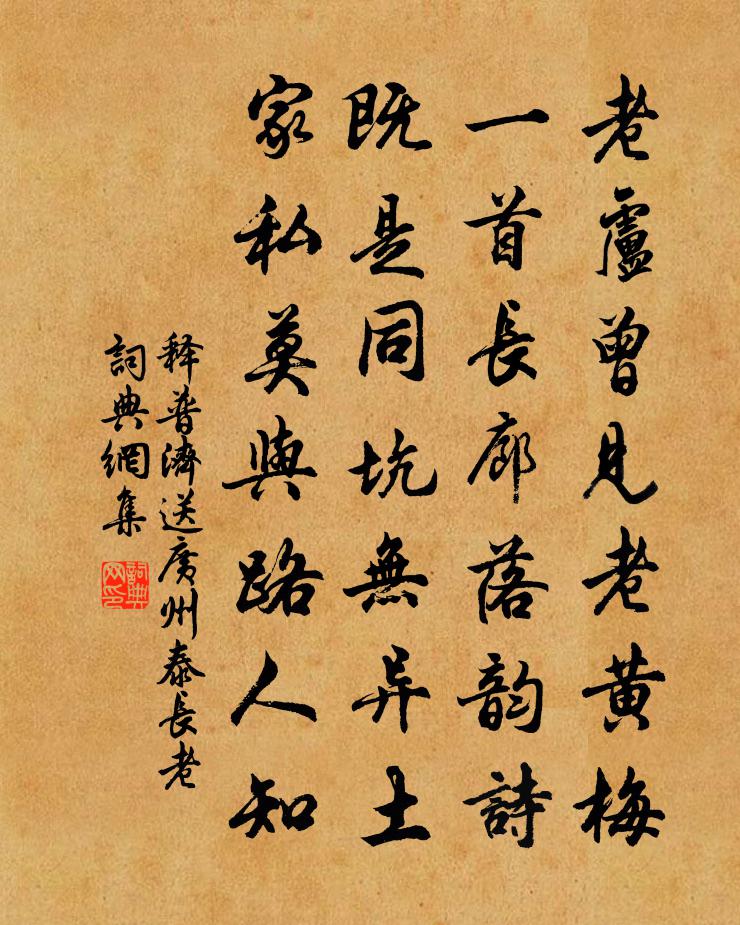 老盧曾見老黄梅
一首長廊落韵詩
既是同坑無异土
家私莫與路人知
释普濟送廣州泰長老
詞典網集
詞典網印